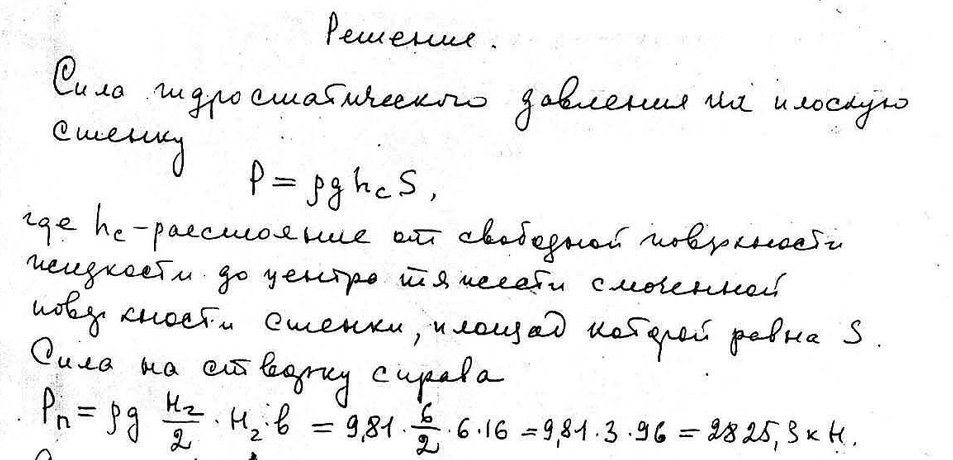 Решение.
Сила гидростатического давления на плоскую
стенку
P = ρg h_c S,
где h_c - расстояние от свободной поверхности
жидкости до центра тяжести смоченной
поверхности стенки, площадь которой равна S.
Сила на створку справа
P_п = ρg H_2/2 · H_2 · в = 9,81 · 6/2 · 6 · 16 = 9,81 · 3 · 96 = 2825,3 кН.